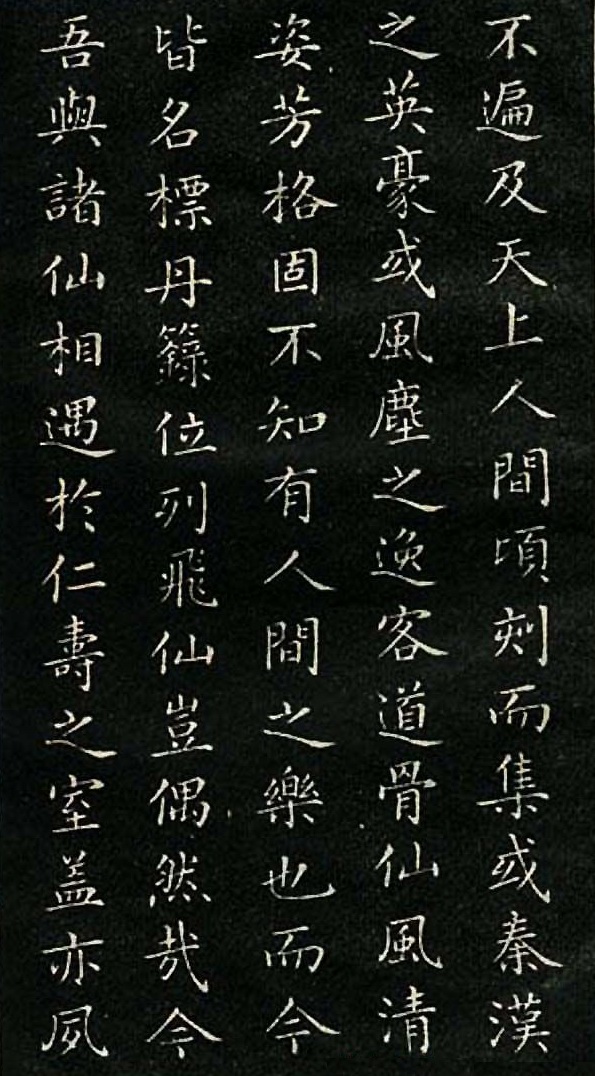 不遍及天上人間頃刻而集或秦漢
之英豪或風塵之逸客道骨仙風清
姿芳格固不知有人間之樂也而今
皆名標丹籙位列飛仙豈偶然哉今
吾與諸仙相遇於仁壽之室盖亦夙